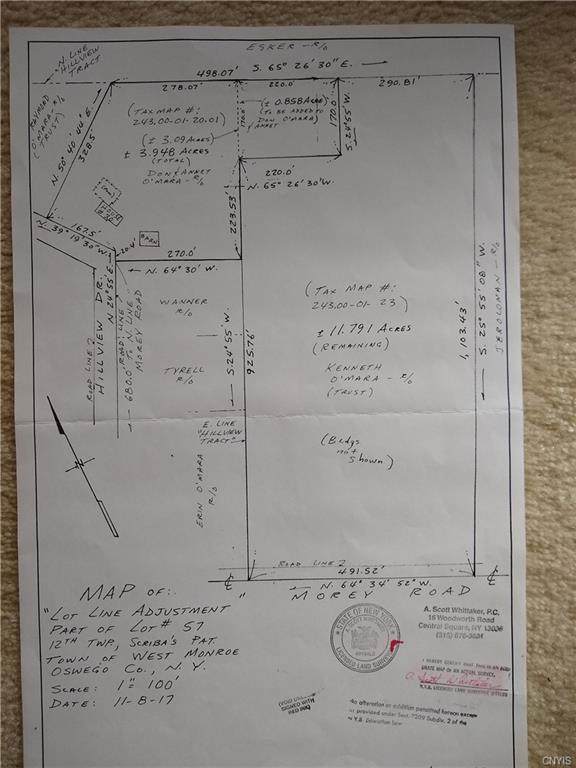 ESKER - R/O
N. LINE
"HILLVIEW
TRACT"
498.07' S. 65° 26' 30" E.
278.07'
220.0'
290.81'
RAYMOND
O'MARA - R/O
(TRUST)
N. 50° 40' 40" E.
328.5'
(TAX MAP #:
243.00-01-20.01)
(± 3.09 ACRES)
± 3.948 ACRES
(TOTAL)
DON & ANNET
O'MARA - R/O
(± 0.858 ACRE)
(TO BE ADDED TO
DON O'MARA)
& ANNET
170.0'
170.0'
S. 24° 55' W.
220.0'
N. 65° 26' 30" W.
223.53'
162.5'
N. 39° 19' 30" W.
20.4'
BARN
270.0'
N. 64° 30' W.
N 24° 55' E.
ROAD LINE?
HILLVIEW DR.
ROAD LINE?
680.0' TO N. LINE
MOREY ROAD
WANNER
R/O
TYRELL
R/O
S. 24° 55' W.
925.76'
E. LINE
"HILLVIEW
TRACT"
ERIN O'MARA
R/O
(TAX MAP #:
243.00-01-23)
± 11.791 ACRES
(REMAINING)
KENNETH
O'MARA - R/O
(TRUST)
(Bldgs
not
Shown)
1,103.43'
S. 25° 55' 08" W.
JEROLOMAN - R/O
N
ROAD LINE?
491.52'
N. 64° 34' 52" W.
MOREY ROAD
MAP OF:.
"LOT LINE ADJUSTMENT"
PART OF LOT # 57
12TH TWP., SCRIBA'S PAT.
TOWN OF WEST MONROE
OSWEGO CO., N.Y.
SCALE: 1" = 100'
DATE: 11-8-17
STATE OF NEW YORK
SCOTT WHITTAKER
LICENSED LAND SURVEYOR
A. Scott Whittaker, P.C.
16 Woodworth Road
Central Square, NY 13036
I HEREBY CERTIFY THAT THIS IS AN ACCU
RATE MAP OF AN ACTUAL SURVEY.
A. Scott Whittaker
N.Y.S. LICENSED LAND SURVEYOR
No alteration or addition permitted hereon except
as provided under Sect. 7209 Subdiv. 2 of the
N.Y.S. Education Law
CNYIS